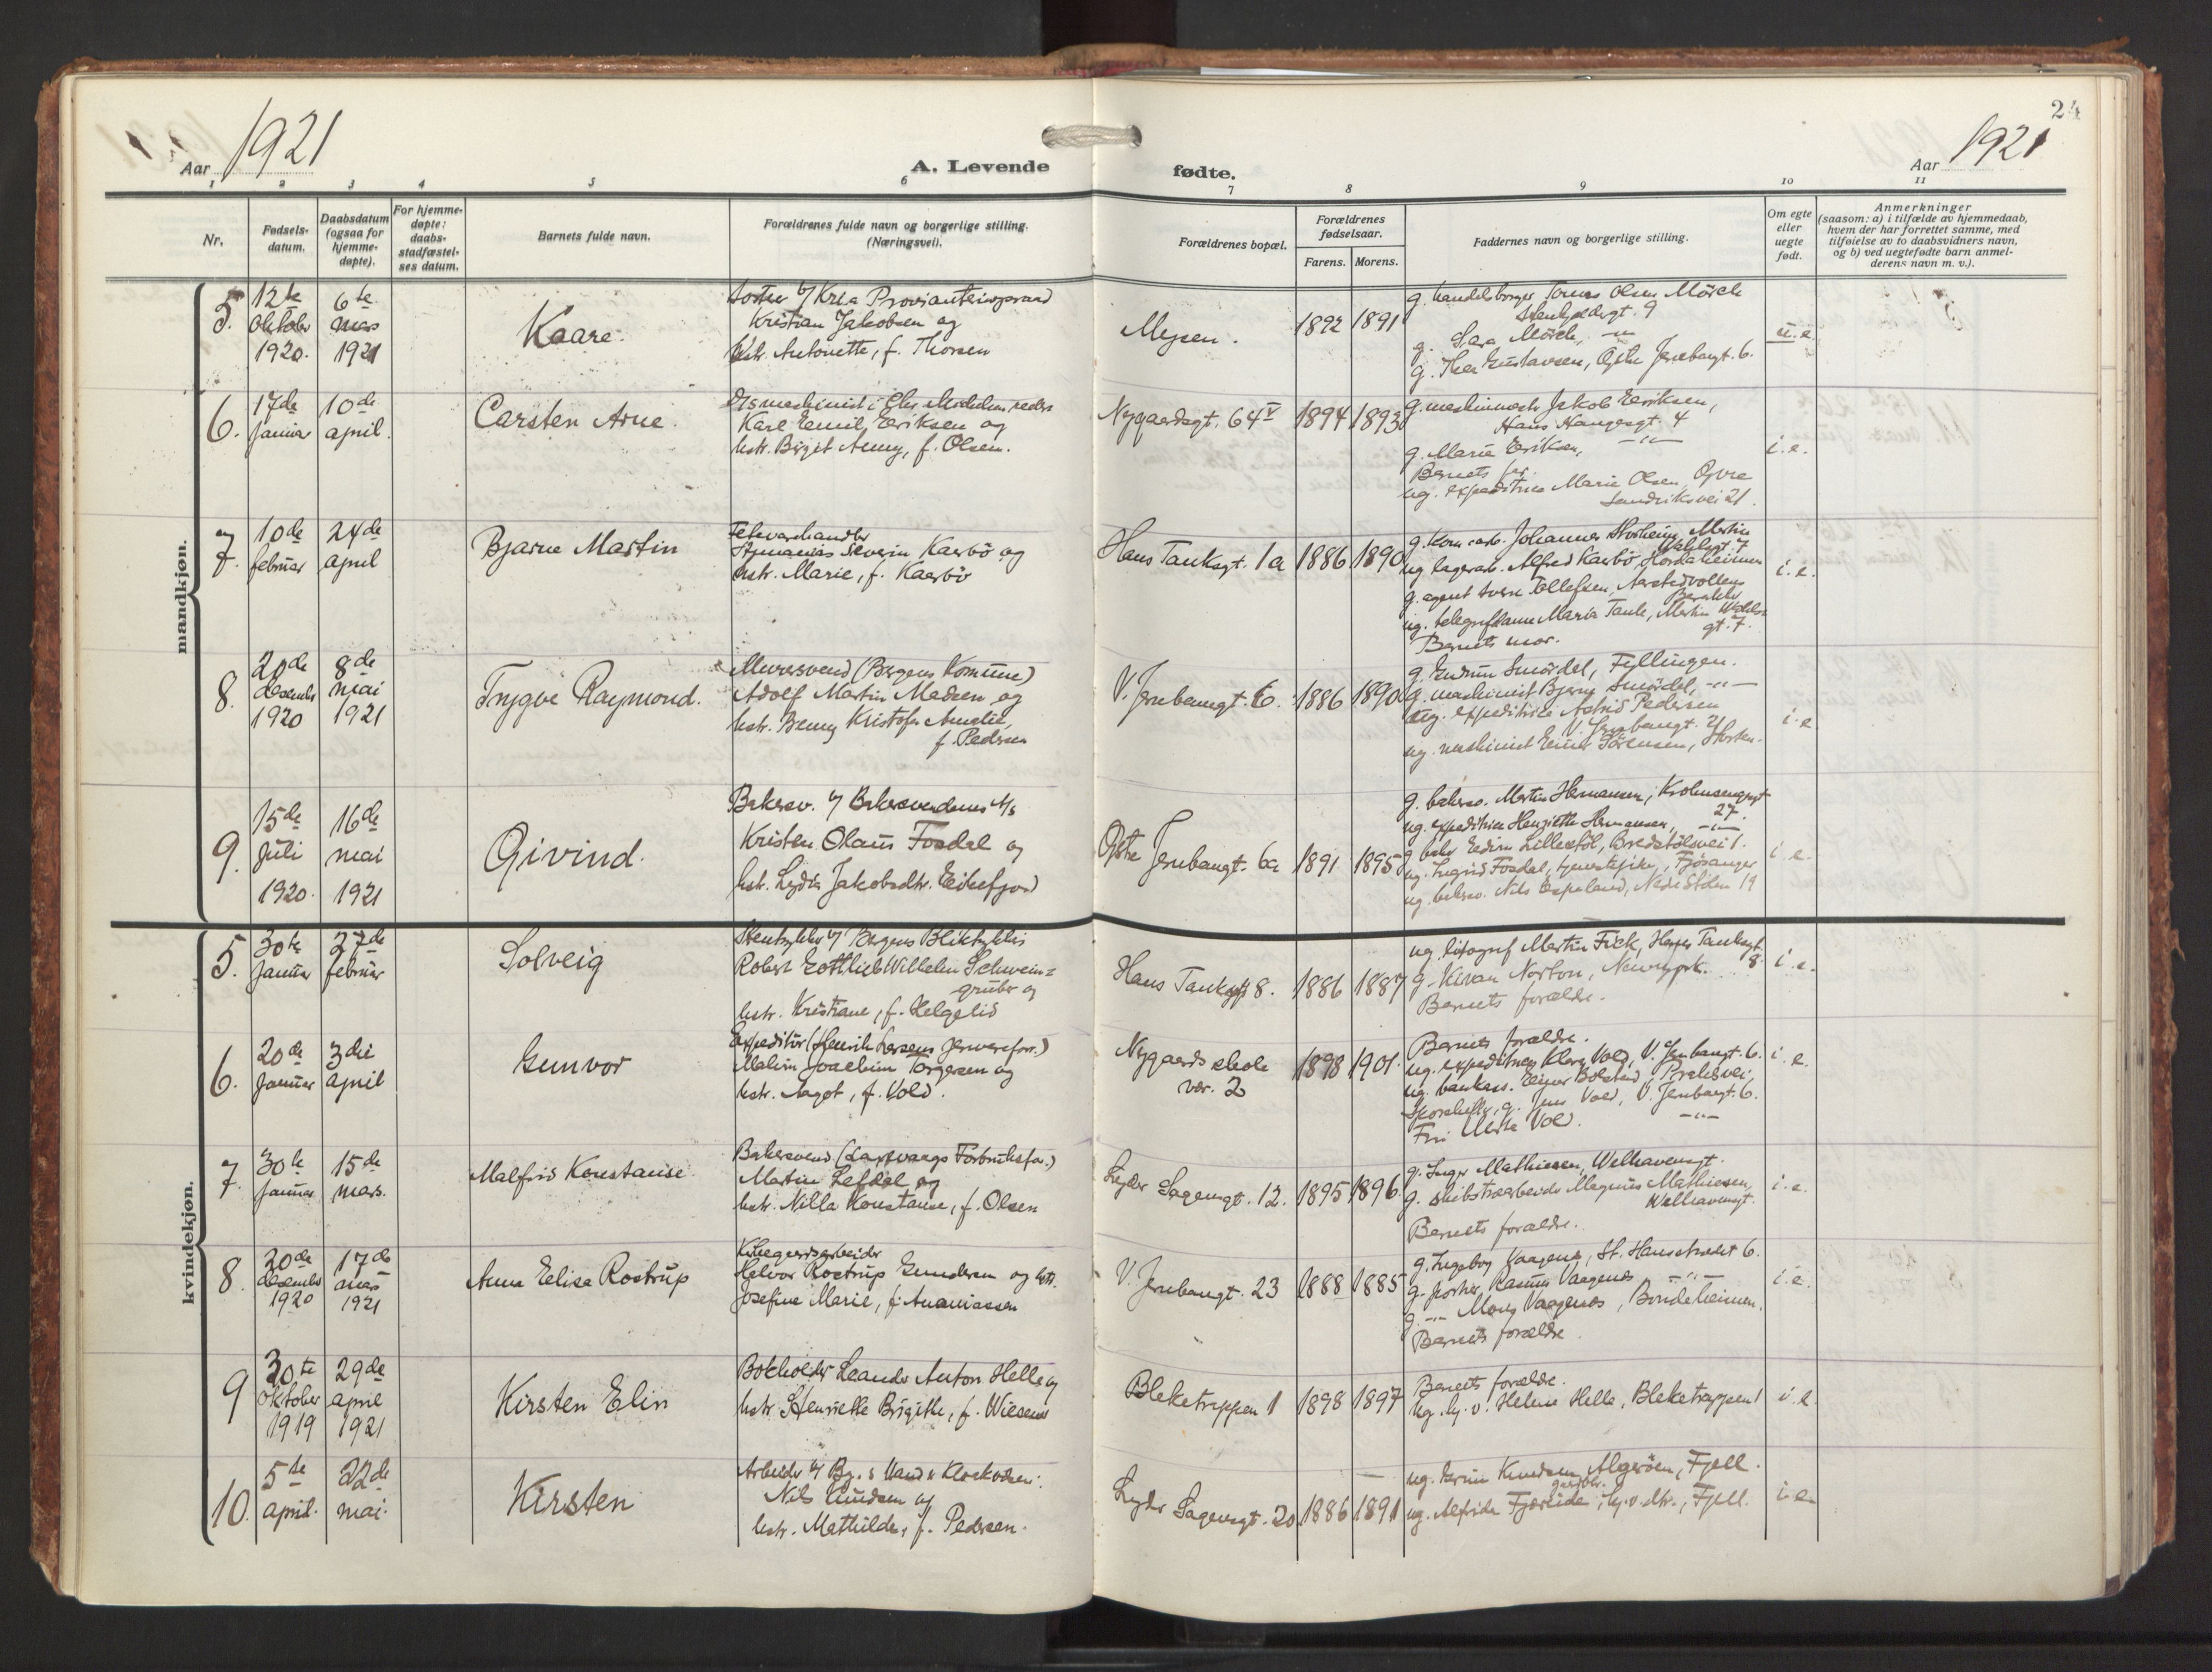 24
Aar 1921
A. Levende
fødte.
Aar 1921
1 2 3 4 5 6 7 8 9 10 11
Nr.
Fødsels-
datum.
Daabsdatum
(ogsaa for
hjemme-
døpte).
For hjemme-
døpte:
daabs-
stadfæstel-
ses datum.
Barnets fulde navn.
Forældrenes fulde navn og borgerlige stilling.
(Næringsvei).
Forældrenes bopæl.
Forældrenes
fødselsaar.
Farens. Morens.
Faddernes navn og borgerlige stilling.
Om egte
eller
uegte
født.
Anmerkninger
(saasom: a) i tilfælde av hjemmedaab,
hvem der har forrettet samme, med
tilføielse av to daabsvidners navn,
og b) ved uegtefødte barn anmel-
derens navn m. v.).
mandkjøn.
5.
12te
oktober
1920.
6te
mars
1921
Kaare.
Kristian Jakobsen og
hstr. Antonette, f. Thorsen
Mysen.
1892 1891
g. handelsborger Tomas Olsen Mörch
g. Sara Mörch, -"-
g. Thea Gustavsen, Østre Jernbanegt. 6.
u. e.
6.
17de
januar
10de
april.
Carsten Arne.
Karl Emil Eeriksen og
hstr. Birgit Anny, f. Olsen.
Nygaardsgt. 64 V
1894 1893
Jakob Eeriksen,
Hans Haugesgt. 4
g. Marie Eeriksen, -"-
Barnets far.
ug. expeditrice Marie Olsen, Øvre
Sandviksvei 21.
i. e.
7.
10de
februar
24de
april
Bjarne Martin
Fetevarehandler
Severin Kaerbö og
hstr. Marie, f. Kaerbö
Hans Tanksgt. 1a
1886 1890
Johannes Storheim, Martin
ug. lagerarb. Alfred Kaerbö, Hordaheimen
g. agent Sverre Tollefsen, Aarstadvollen
ug. telegrafdame Maria Tank, Martin
gt. 7.
Barnets mor.
i. e.
8.
20de
desember
1920
8de
mai
1921
Trygve Raymond.
Muresvend (Bergens Komune)
Adolf Martin Madsen og
hstr. Benny Kristofa Amalie,
f. Pedersen
V. Jernbanegt. 6.
1886 1890
g. Gudrun Smördal, Fyllingen.
g. maschinist Bjarne Smördal, -"-
ug. expeditrice Astrid Pedersen
V. Jernbanegt. 21
ug. maskinist Einar Sörensen, Horten.
i. e
9.
15de
juli
1920.
16de
mai
1921
Øivind.
Bakersv. v/ Bakersvendenes A/s
Kristen Olaus Fosdal og
hstr. Lydia Jakobsdtr. Eikefjord
Østre Jernbanegt. 6a
1891 1895
g. bakersv. Martin Hermansen, Krohnsengsgt
27.
ug. expeditrice Henriette Hermansen, -"-
g. Lillestöl, Bredstölsvei 1.
ug. Ingrid Fosdal, tjenestepike, Fjösanger
ug. bakersv. Nils Espeland, Nedre Stölen 19
i. e.
kvindekjøn.
5.
30te
januar
27de
februar
Solveig
Bergens Bliktrykkeri
Robert Gottlieb Wilhelm Schwein=
gruber og
hstr. Kristiane, f. Helgelid
Hans Tanksgt 8.
1886 1887
ug. litograf Martin Fick, Hans Tanksgt.
8.
Norton, Newyork.
Barnets forældre.
i. e.
6.
20de
januar
3die
april
Gunvor
Expeditör (Henrik Larsens jernvareforr.)
Joachim Torgersen og
hstr. Aagot, f. Vold.
Nygaards skole
vær. 2
1898 1901.
Barnets forældre.
ug. expeditrice Klara Vold, V. Jernbanegt. 6.
ug. Einar Bolstad,
Jens Vold, V. Jernbanegt. 6.
Vold. -"-
i. e.
7.
30te
januar
15de
mars.
Malfrid Konstanse
Bakersvend (Laksevaags Forbruksfor.)
Martin Lefdal og
hstr. Nilla Konstanse, f. Olsen
Lyder Sagensgt. 12.
1895 1896.
g. Inger Mathiesen, Welhavensgt.
g. skibstræarbeider Magnus Mathiesen,
Welhavensgt.
Barnets forældre.
i. e.
8.
20de
desember
1920
17de
mars
1921
Anna Elisa Rostrup
Kirkegaardsarbeider
Halvor Rostrup Gundersen og hstr.
Josefine Marie, f. Ananiassen
V. Jernbanegt. 23
1888 1885
g. Ingeborg Vaagenes, St. Hansstrædet 6.
g. Rasmus Vaagenes -"-
g. -"- Mons Vaagenes, Bondeheimen.
Barnets forældre.
i. e.
9
30te
oktober
1919
29de
april
1921
Kirsten Elin
Bokholder Leander Anton Helle og
hstr. Henriette Brigithe, f. Wiesener
Bleketrappen 1
1898 1897
Barnets forældre.
ug. hj. v. Helene Helle, Bleketrappen 1
i. e.
10.
5te
april.
22de
mai.
Kirsten
Arbeider v/ Bg.s Vand & Kloakvæsen.
Nils Knudsen og
hstr. Mathilde, f. Pedersen.
Lyder Sagensgt. 20
1886 1891
Knudsen, Algeröen, Fjell.
ug. Alfrida Fjæreide, hj. v. dtr., Fjell.
i. e.